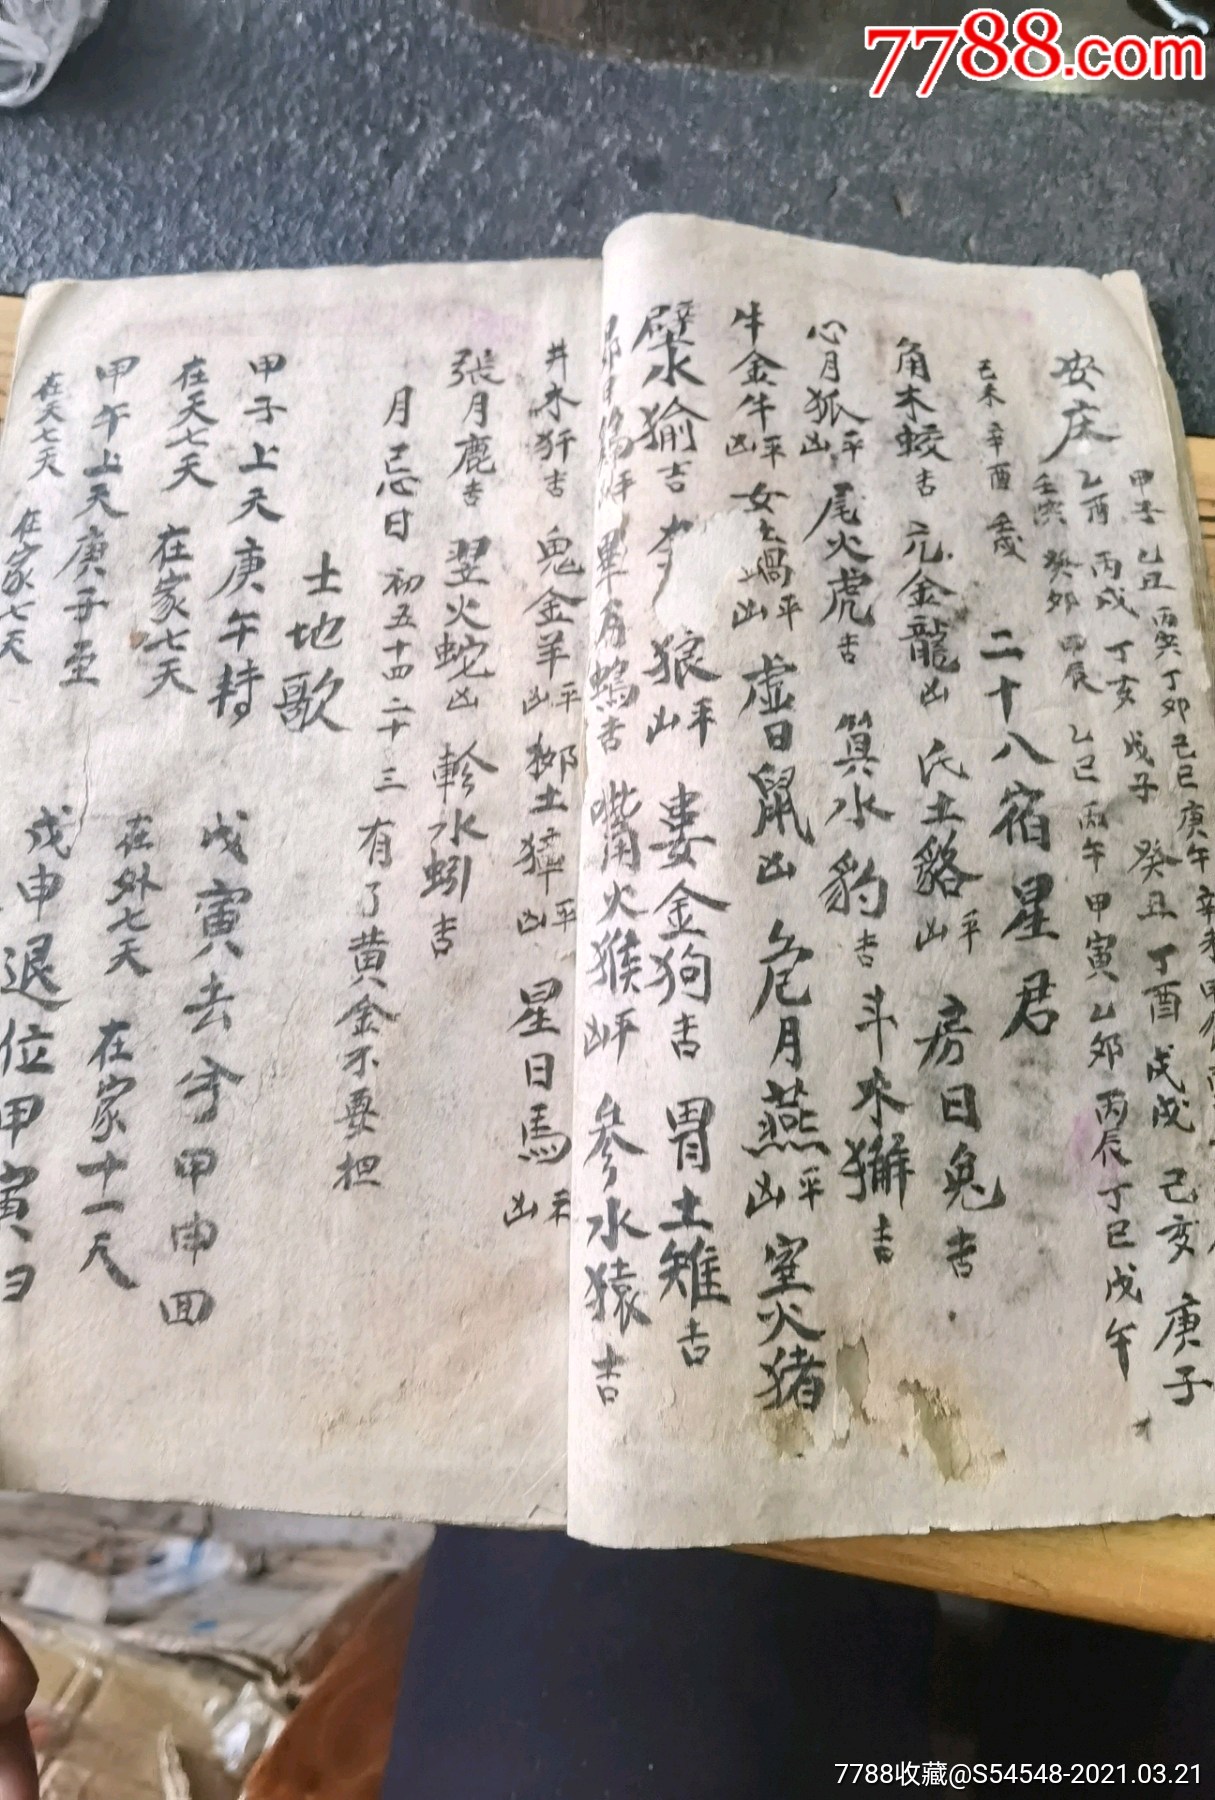 7788.com
安床
甲子 乙丑 丙寅 丁卯 己巳 庚午 辛未
乙酉 丙戌 丁亥 戊子 癸丑 丁酉 戊戌 己亥 庚子
壬寅 癸卯 甲辰 乙巳 丙午 甲寅 乙卯 丙辰 丁巳 戊午
己未 辛酉 壬戌
二十八宿星君
角木蛟吉 元金龍凶 氐土貉平凶 房日兔吉
心月狐平凶 尾火虎吉 箕水豹吉 斗木獬吉
牛金牛平凶 女土蝠平凶 虚日鼠凶 危月燕平凶 室火猪
壁水貐吉 狼平凶 婁金狗吉 胃土雉吉
畢月 吉 嘴火猴平凶 参水猿吉
井木犴吉 鬼金羊平凶 柳土獐平凶 星日馬平凶
張月鹿吉 翌火蛇凶 軫水蚓吉
月忌日 初五十四二十三 有了黄金不要担
土地歌
甲子上天庚午持 戊寅去兮甲申回
在天七天 在家七天 在外七天 在家十一天
甲午上天庚子至 戊申退位甲寅
在天七天 在家七天
7788收藏@S54548-2021.03.21